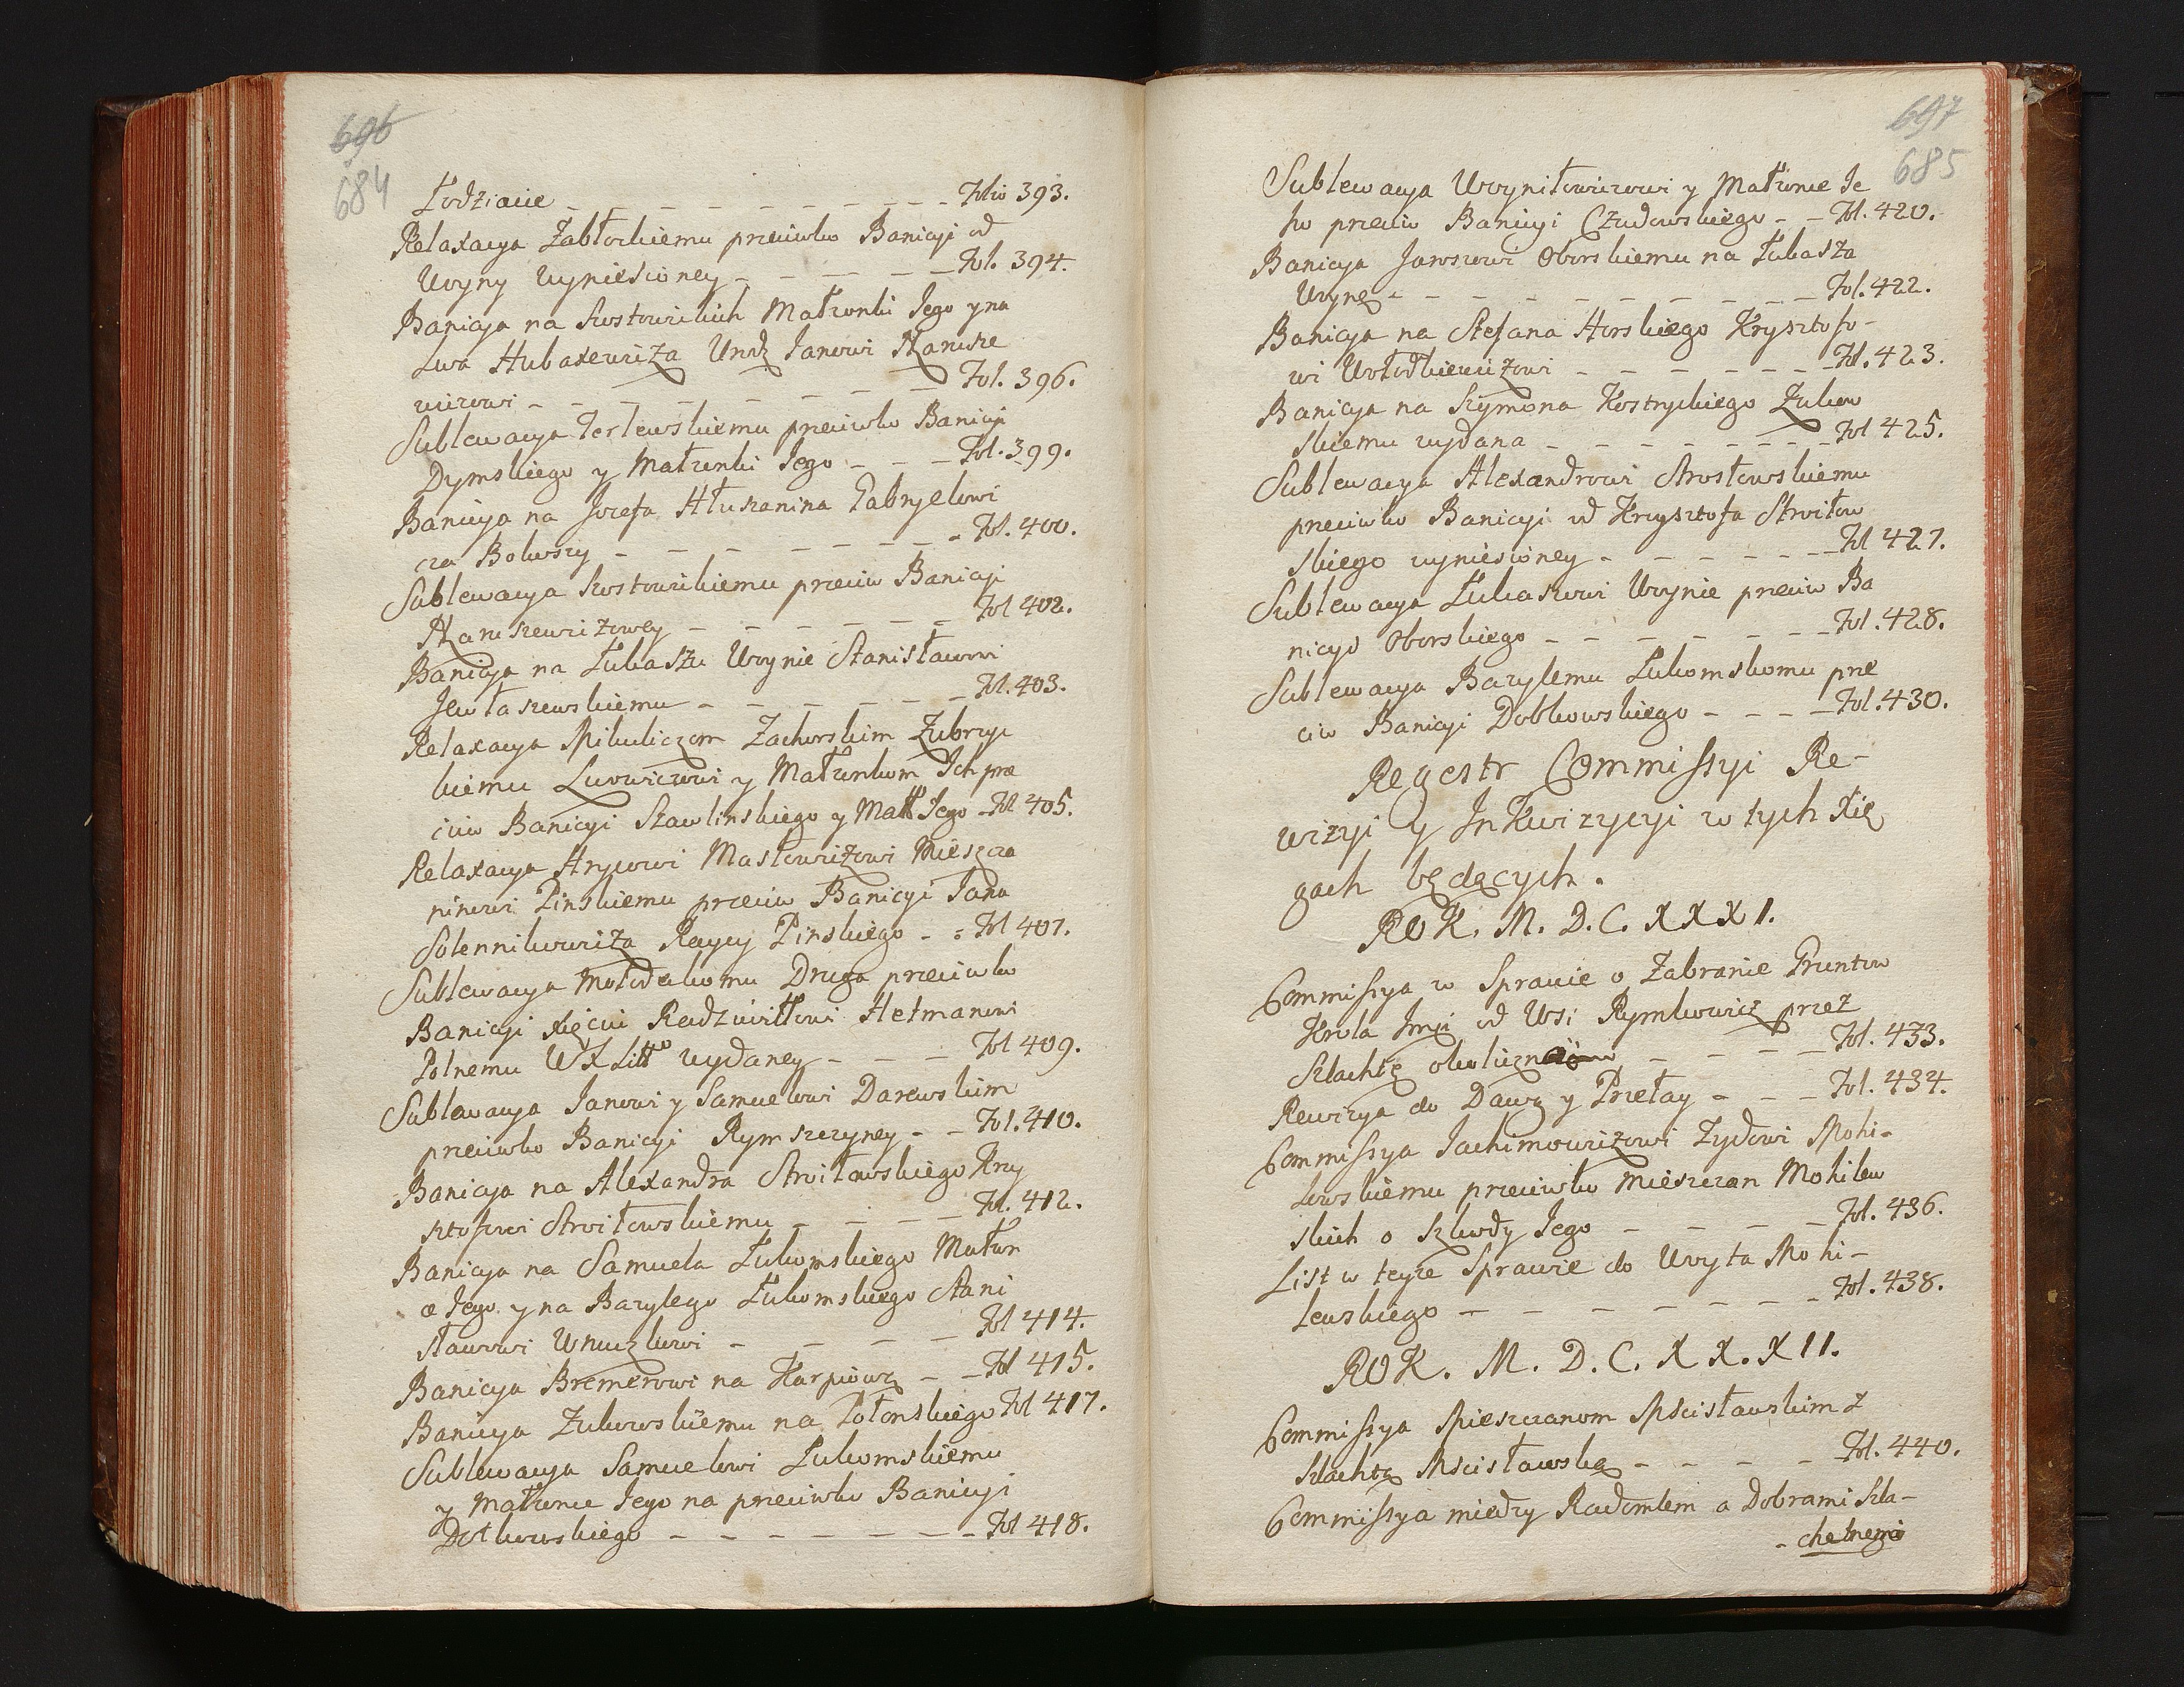 696
684
Łodziacie - - - - - - - - - - Folio 393.
Relaxacya Zabłockiemu przeciwko Banicyi od
Woyny wyniesioney - - - - - - Fol. 394.
Banicya na Szostowickich Małzonki Jego y na
Lwa Hubarewicza Janowi
wiczowi - - - - - - - - Fol. 396.
Sublewacya Terlewskiemu przeciwko Banicyi
Dymskiego y Małzonki Jego - - - Fol. 399.
Banicya na Jozefa Hłuszanina Gabryelowi
cza Bolwszy - - - - - - - - Fol. 400.
Sublewacya Szostowickiemu przeciw Banicyi
Haraszewiczowey - - - - - - Fol 402.
Banicya na Łukasza Woynie Stanisławowi
Jewłaszewskiemu - - - - - - Fol. 403.
Relaxacya Mikuliczom Zachorskim Zubrzyc
kiemu Lwowiczowi y Małzonkom Ich prze
ciw Banicyi Szawlinskiego y Małł Jego - Fol 405.
Relaxacya Hrycowi Masłowiczowi Mieszcza
ninowi Pinskiemu przeciw Banicyi Jana
Solennikowicza Raycy Pinskiego - - Fol 407.
Sublewacya Mołodeckomu Druga przeciwko
Banicyi Xięciu Radziwiłłowi Hetmanowi
Polnemu W X Litt wydaney - - - Fol 409.
Sublewacya Janowi y Samuelowi Darewskim
przeciwko Banicyi Rymszczyney - - Fol. 410.
Banicya na Alexandra Stroiłowskiego Krzy
sztofowi Stroiłowskiemu - - - - Fol. 412.
Banicya na Samuela Łukomskiego Małzon
e Jego y na Bazylego Łukomskiego Stani
sławowi Wnuczkowi - - - - - Fol 414.
Banicya Bremerowi na Karpiowę - - Fol 415.
Banicya Zukowskiemu na Połonskiego Fol 417.
Sublewacya Samuelowi Łukomskiemu
y Małzonce Jego na przeciwko Banicyi
Dołkowskiego - - - - - - - - Fol 418.
697
685
Sublewacya Woyniłowiczowi y Małzonce Je
ho przeciw Banicyi Czudowskiego - - Fol. 420.
Banicya Jaroszowi Oborskiemu na Łukasza
Woynę - - - - - - - - - - Fol. 422.
Banicya na Stefana Horskiego Krysztofo-
wi Wołodkiewiczowi - - - - - - Fol. 423.
Banicya na Szymona Kostryckiego Zukow
skiemu wydana - - - - - - - - Fol 425.
Sublewacya Alexandrowi Strosłowskiemu
przeciwko Banicyi od Krzysztofa Stroiłow
skiego wyniesioney - - - - - - Fol 427.
Sublewacya Łukaszowi Woynie przeciw Ba
nicyi Oborskiego - - - - - - - Fol. 428.
Sublewacya Bazylemu Łukomskomu prze
ciw Banicyi Dobkowskiego - - - - Fol. 430.
Regestr Commissyi Re-
wizyi y Inkwizycyi w tych Xię
gach będęcych.
ROK. M. D. C. X X X I.
Commissya w Sprawie o Zabranie Gruntow
Krola Jmci od Wsi Rymkowicz przez
Szlachtę okoliczną - - - - Fol. 433.
Rewizya do Dawg y Przełay - - - Fol. 434.
Commissya Jachimowiczowi Zydowi Mohi-
lewskiemu przeciwko Mieszczan Mohilew
skich o Szkody Jego - - - - - Fol. 436.
List w teyze Sprawie do Woyta Mohi-
lewskiego - - - - - - - - Fol. 438.
ROK. M. D. C. X X. X I I.
Commissya Mieszczanom Mścisławskim z
Szlachtą Mscisławską - - - - - Fol. 440.
Commissya między Radomlem a Dobrami Szla-
- checkiemi